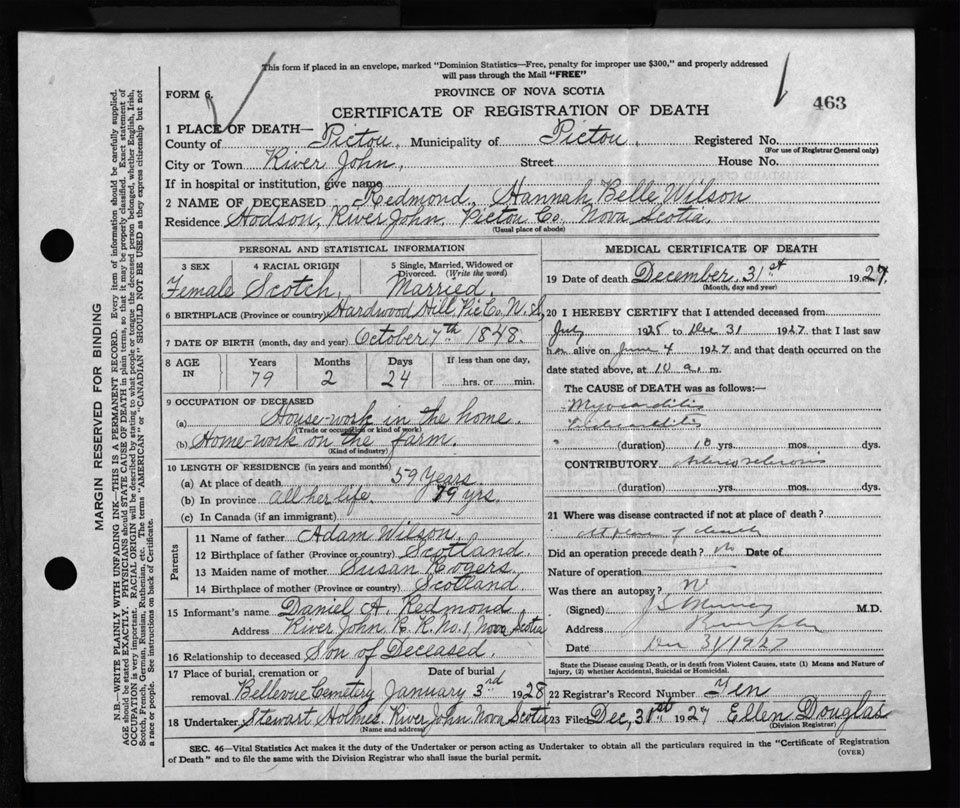 This form if placed in an envelope, marked "Dominion Statistics—Free, penalty for improper use $300," and properly addressed
will pass through the Mail "FREE"
FORM 6.
PROVINCE OF NOVA SCOTIA
463
CERTIFICATE OF REGISTRATION OF DEATH
1 PLACE OF DEATH—
County of Pictou, Municipality of Pictou, Registered No.
(For use of Registrar General only)
City or Town River John, Street House No.
If in hospital or institution, give name
2 NAME OF DECEASED Redmond, Hannah Belle Wilson
Residence Hodson, River John, Pictou Co. Nova Scotia.
(Usual place of abode)
PERSONAL AND STATISTICAL INFORMATION
3 SEX 4 RACIAL ORIGIN 5 Single, Married, Widowed or Divorced. (Write the word)
Female Scotch. Married.
6 BIRTHPLACE (Province or country) Hardwood Hill, Pic Co, N.S,
7 DATE OF BIRTH (month, day and year) October 7th 1848.
8 AGE IN Years Months Days If less than one day,
79 2 24 hrs. or min.
9 OCCUPATION OF DECEASED
(a) House-work in the home
(Trade or occupation or kind of work)
(b) Home-work on the farm.
(Kind of industry)
10 LENGTH OF RESIDENCE (in years and months)
(a) At place of death 59 Years
(b) In province all her life. 79 yrs.
(c) In Canada (if an immigrant)
Parents
11 Name of father Adam Wilson.
12 Birthplace of father (Province or country) Scotland.
13 Maiden name of mother Susan Rodgers
14 Birthplace of mother (Province or country) Scotland
15 Informant's name Daniel A. Redmond
Address River John, R. R. No. 1, Nova Scotia
16 Relationship to deceased Son of Deceased.
17 Place of burial, cremation or removal Bellevue Cemetery Date of burial January 3rd 1928
18 Undertaker Stewart Holmes. River John Nova Scotia
(Name and address)
MEDICAL CERTIFICATE OF DEATH
19 Date of death December, 31st 1927.
(Month, day and year)
20 I HEREBY CERTIFY that I attended deceased from
July 1925 to Dec 31 1927 that I last saw
her alive on June 4 1927 and that death occurred on the
date stated above, at 10 a. m.
The CAUSE OF DEATH was as follows:—
Myocarditis
(duration) 10 yrs. mos. dys.
CONTRIBUTORY Arteriosclerosis
(duration) yrs. mos. dys.
21 Where was disease contracted if not at place of death?
At place of death
Did an operation precede death? no Date of
Nature of operation
Was there an autopsy?
(Signed) M.D.
Address
Date Dec 31/1927
State the Disease causing Death, or in death from Violent Causes, state (1) Means and Nature of
Injury, (2) whether Accidental, Suicidal or Homicidal.
22 Registrar's Record Number Ten
23 Filed Dec, 31st 1927 Ellen Douglas
(Division Registrar)
SEC. 46—Vital Statistics Act makes it the duty of the Undertaker or person acting as Undertaker to obtain all the particulars required in the "Certificate of Registration
of Death" and to file the same with the Division Registrar who shall issue the burial permit.
(OVER)
MARGIN RESERVED FOR BINDING
N.B.—WRITE PLAINLY WITH UNFADING INK—THIS IS A PERMANENT RECORD. Every item of information should be carefully supplied.
AGE should be stated EXACTLY. PHYSICIANS should STATE CAUSE OF DEATH in plain terms, so that it may be properly classified. Exact statement of
OCCUPATION is very important. RACIAL ORIGIN will be described by stating to what people or tongue the deceased person belonged, whether English, Irish,
Scotch, French, German, Russian, Ruthenian, etc. The terms "AMERICAN" or "CANADIAN" SHOULD NOT BE USED as they express citizenship but not
a race or people. See instructions on back of Certificate.